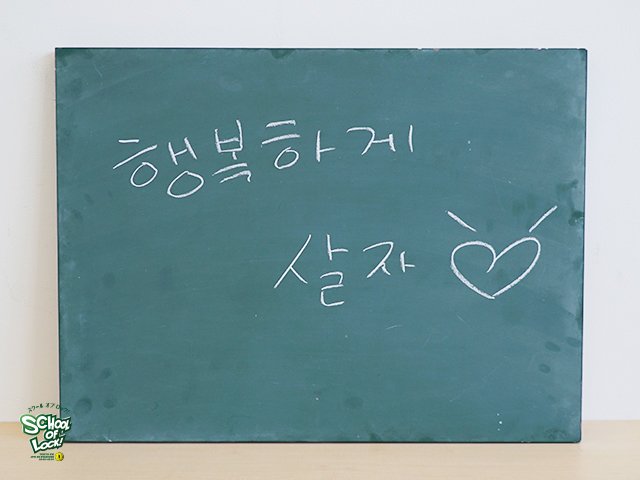 행복하게
살자
スクール オブ ロック!
SCHOOL
OF
LOCK!